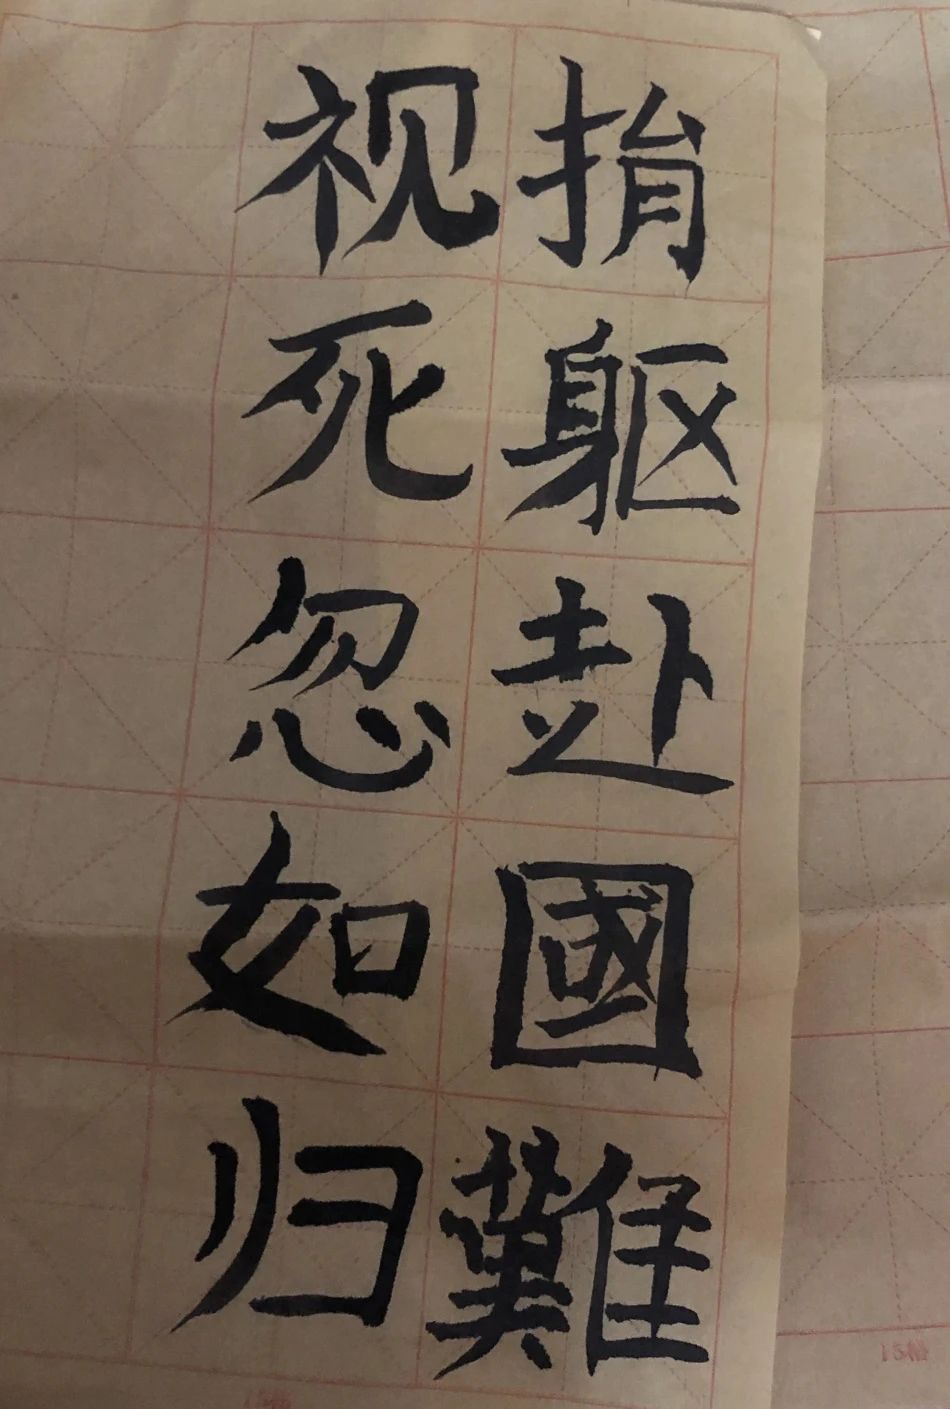 捐躯赴國難
视死忽如归